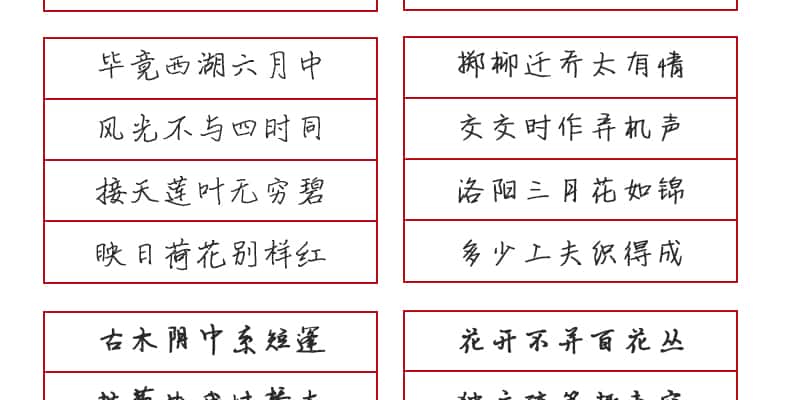 毕竟西湖六月中
风光不与四时同
接天莲叶无穷碧
映日荷花别样红
掷柳迁乔太有情
交交时作弄机声
洛阳三月花如锦
多少工夫织得成
古木阴中系短篷
花开不并百花丛